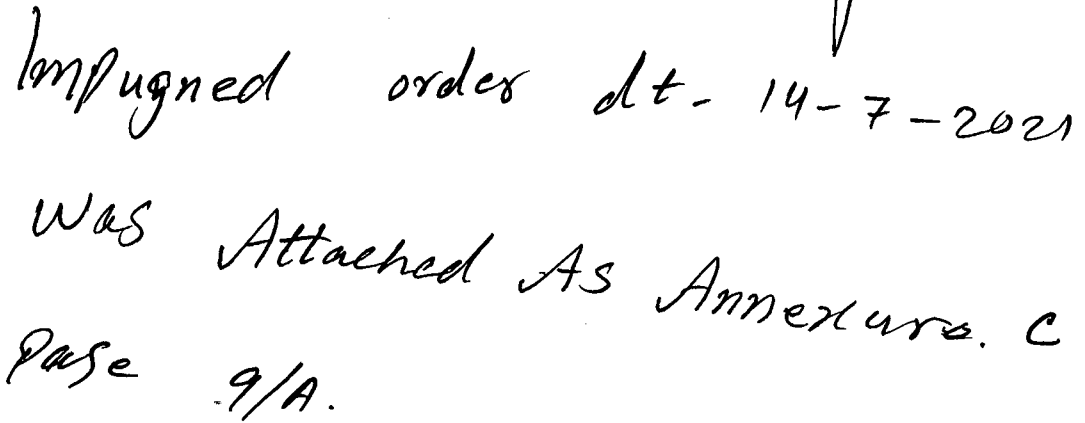 Impugned order dt- 14-7-2021
Was Attached As Annexure. C
Page 9/A.